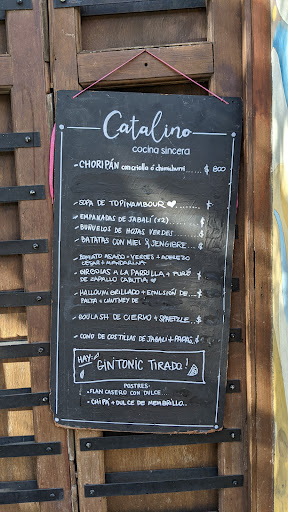 Catalino
cocina sincera
- CHORIPÁN con criolla ó chimichurri ..... $ 800
- SOPA DE TOPINAMBOUR ........ $
- EMPANADAS DE JABALÍ (x2) ........ $
- BUÑUELOS DE HOJAS VERDES ........ $
- BATATAS CON MIEL Y JENGIBRE .... $
- BONIATO ASADO + VERDES + ADEREZO
CESAR + MANDARINA
- GIRGOLAS A LA PARRILLA + PURÉ
DE ZAPALLO CABUTIA $
- HALLOUMI GRILLADO + EMULSIÓN DE
PALTA + CHUTNEY DE $
- GOULASH DE CIERVO + SPAETZLE .. $
- COND DE COSTILLAS DE JABALÍ + PAPAS. $
HAY GINTONIC TIRADO!
POSTRES-
- FLAN CASERO CON DULCE...
- CHIPÁ + DULCE DE MEMBRILLO..